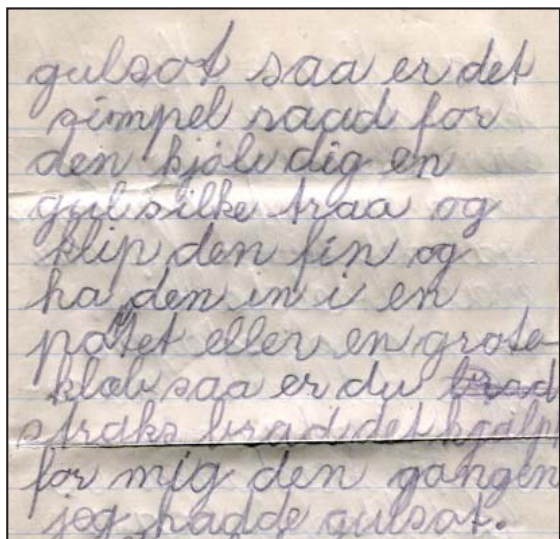 gulsot saa er det
simpel raad for
den kjöb dig en
gul silke traa og
klip den fin og
ha den in i en
potet eller en grote-
klob saa er du brad
straks brad det hjalp
for mig den gangen
jeg hadde gulsot.